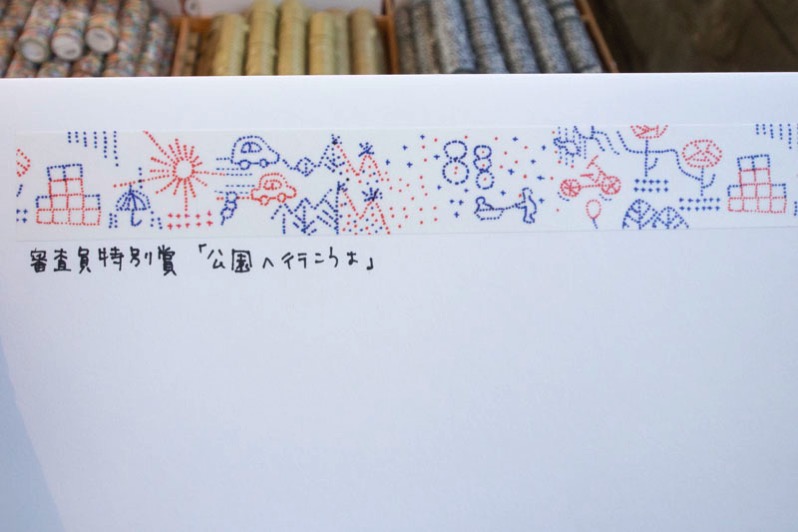 審査員特別賞「公園へ行こうよ」